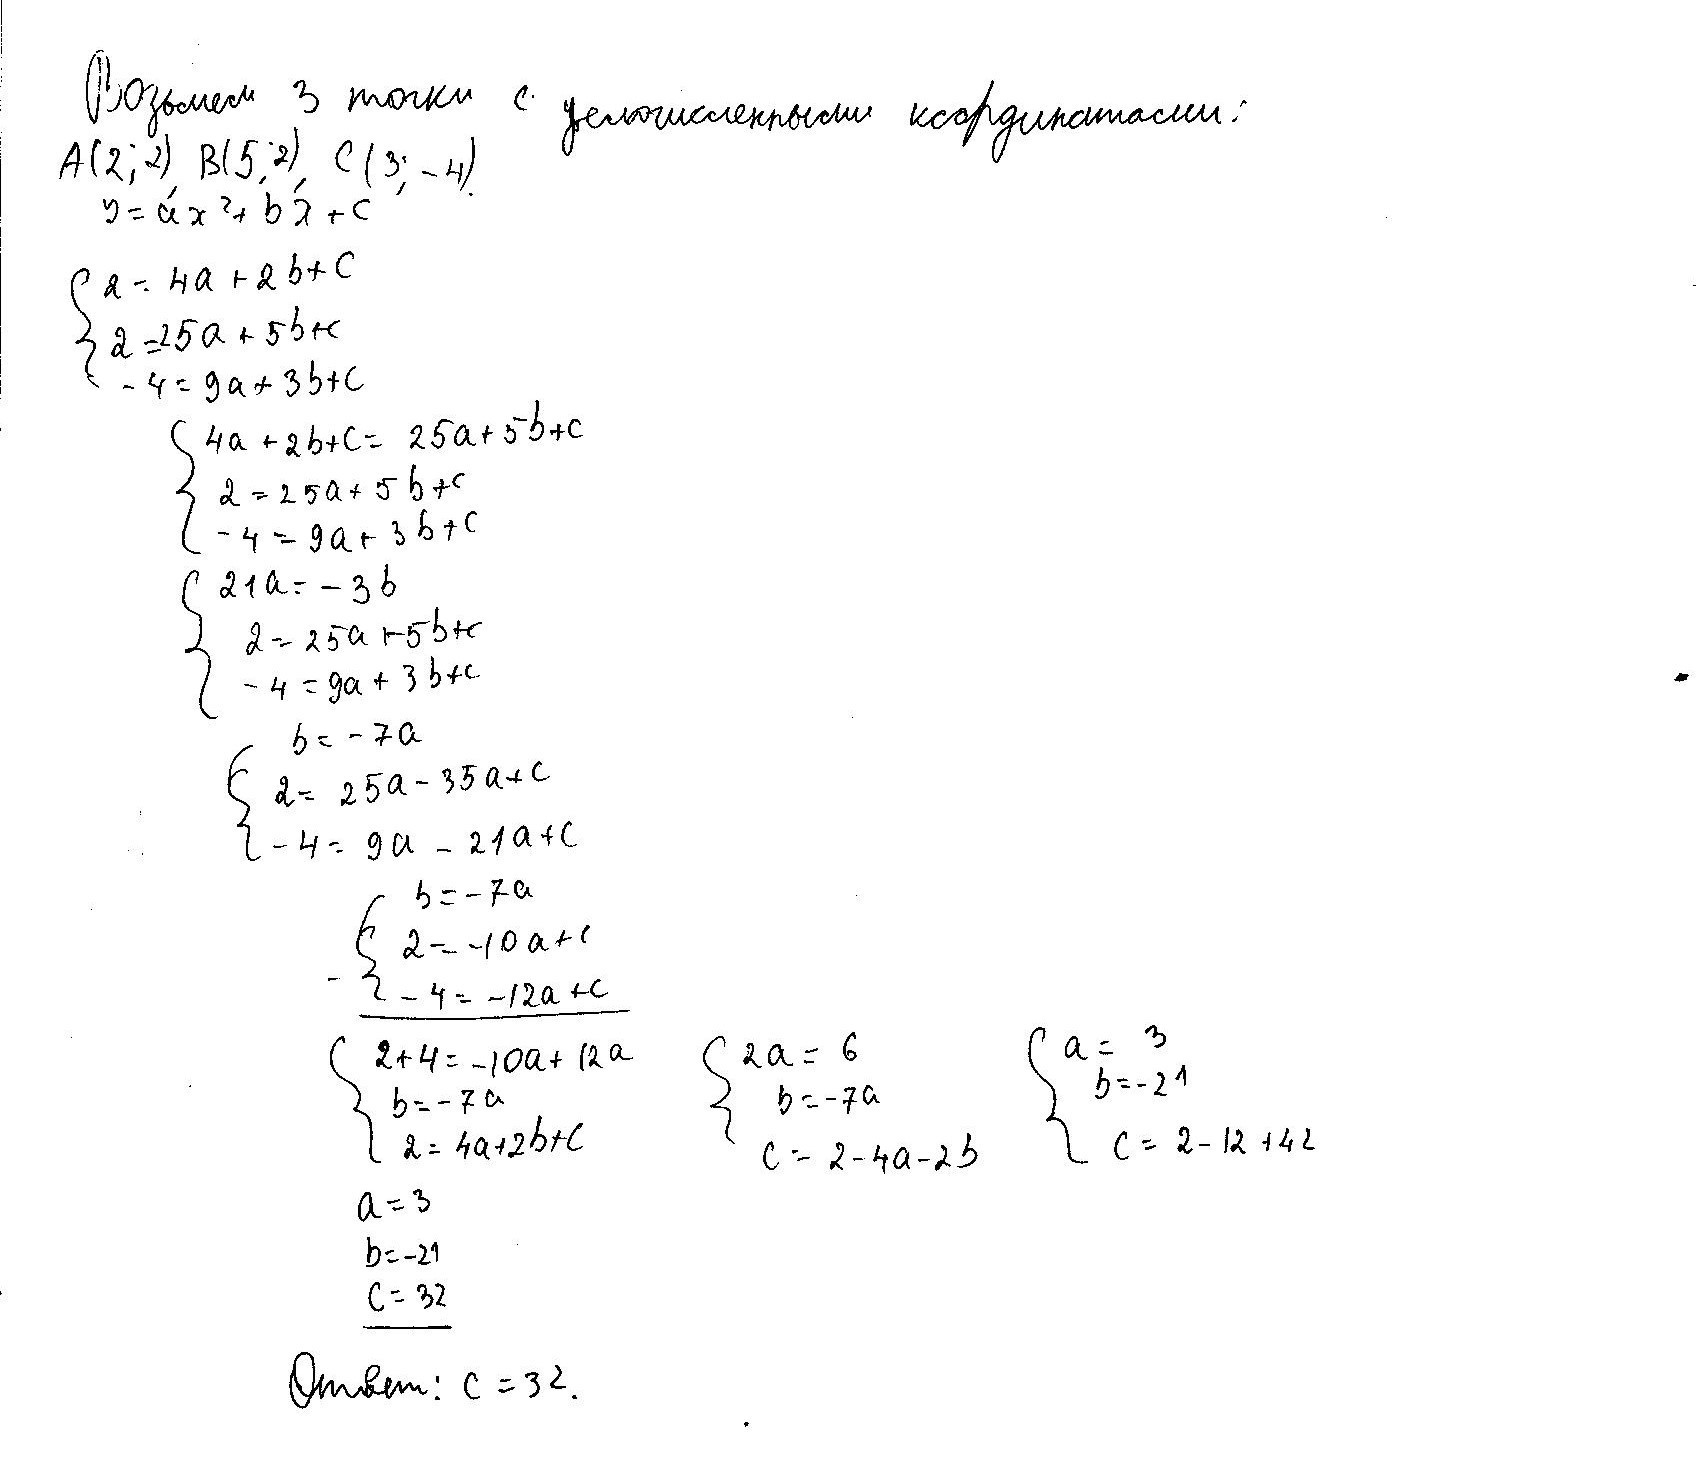 Возьмем 3 точки с целочисленными координатами:
A(2; 2), B(5; 2), C(3; -4).
y = ax² + bx + c
2 = 4a + 2b + c
2 = 25a + 5b + c
-4 = 9a + 3b + c
4a + 2b + c = 25a + 5b + c
2 = 25a + 5b + c
-4 = 9a + 3b + c
21a = -3b
2 = 25a + 5b + c
-4 = 9a + 3b + c
b = -7a
2 = 25a - 35a + c
-4 = 9a - 21a + c
b = -7a
2 = -10a + c
-4 = -12a + c
2 + 4 = -10a + 12a
b = -7a
2 = 4a + 2b + c
2a = 6
b = -7a
c = 2 - 4a - 2b
a = 3
b = -21
c = 2 - 12 + 42
a = 3
b = -21
c = 32
Ответ: c = 32.